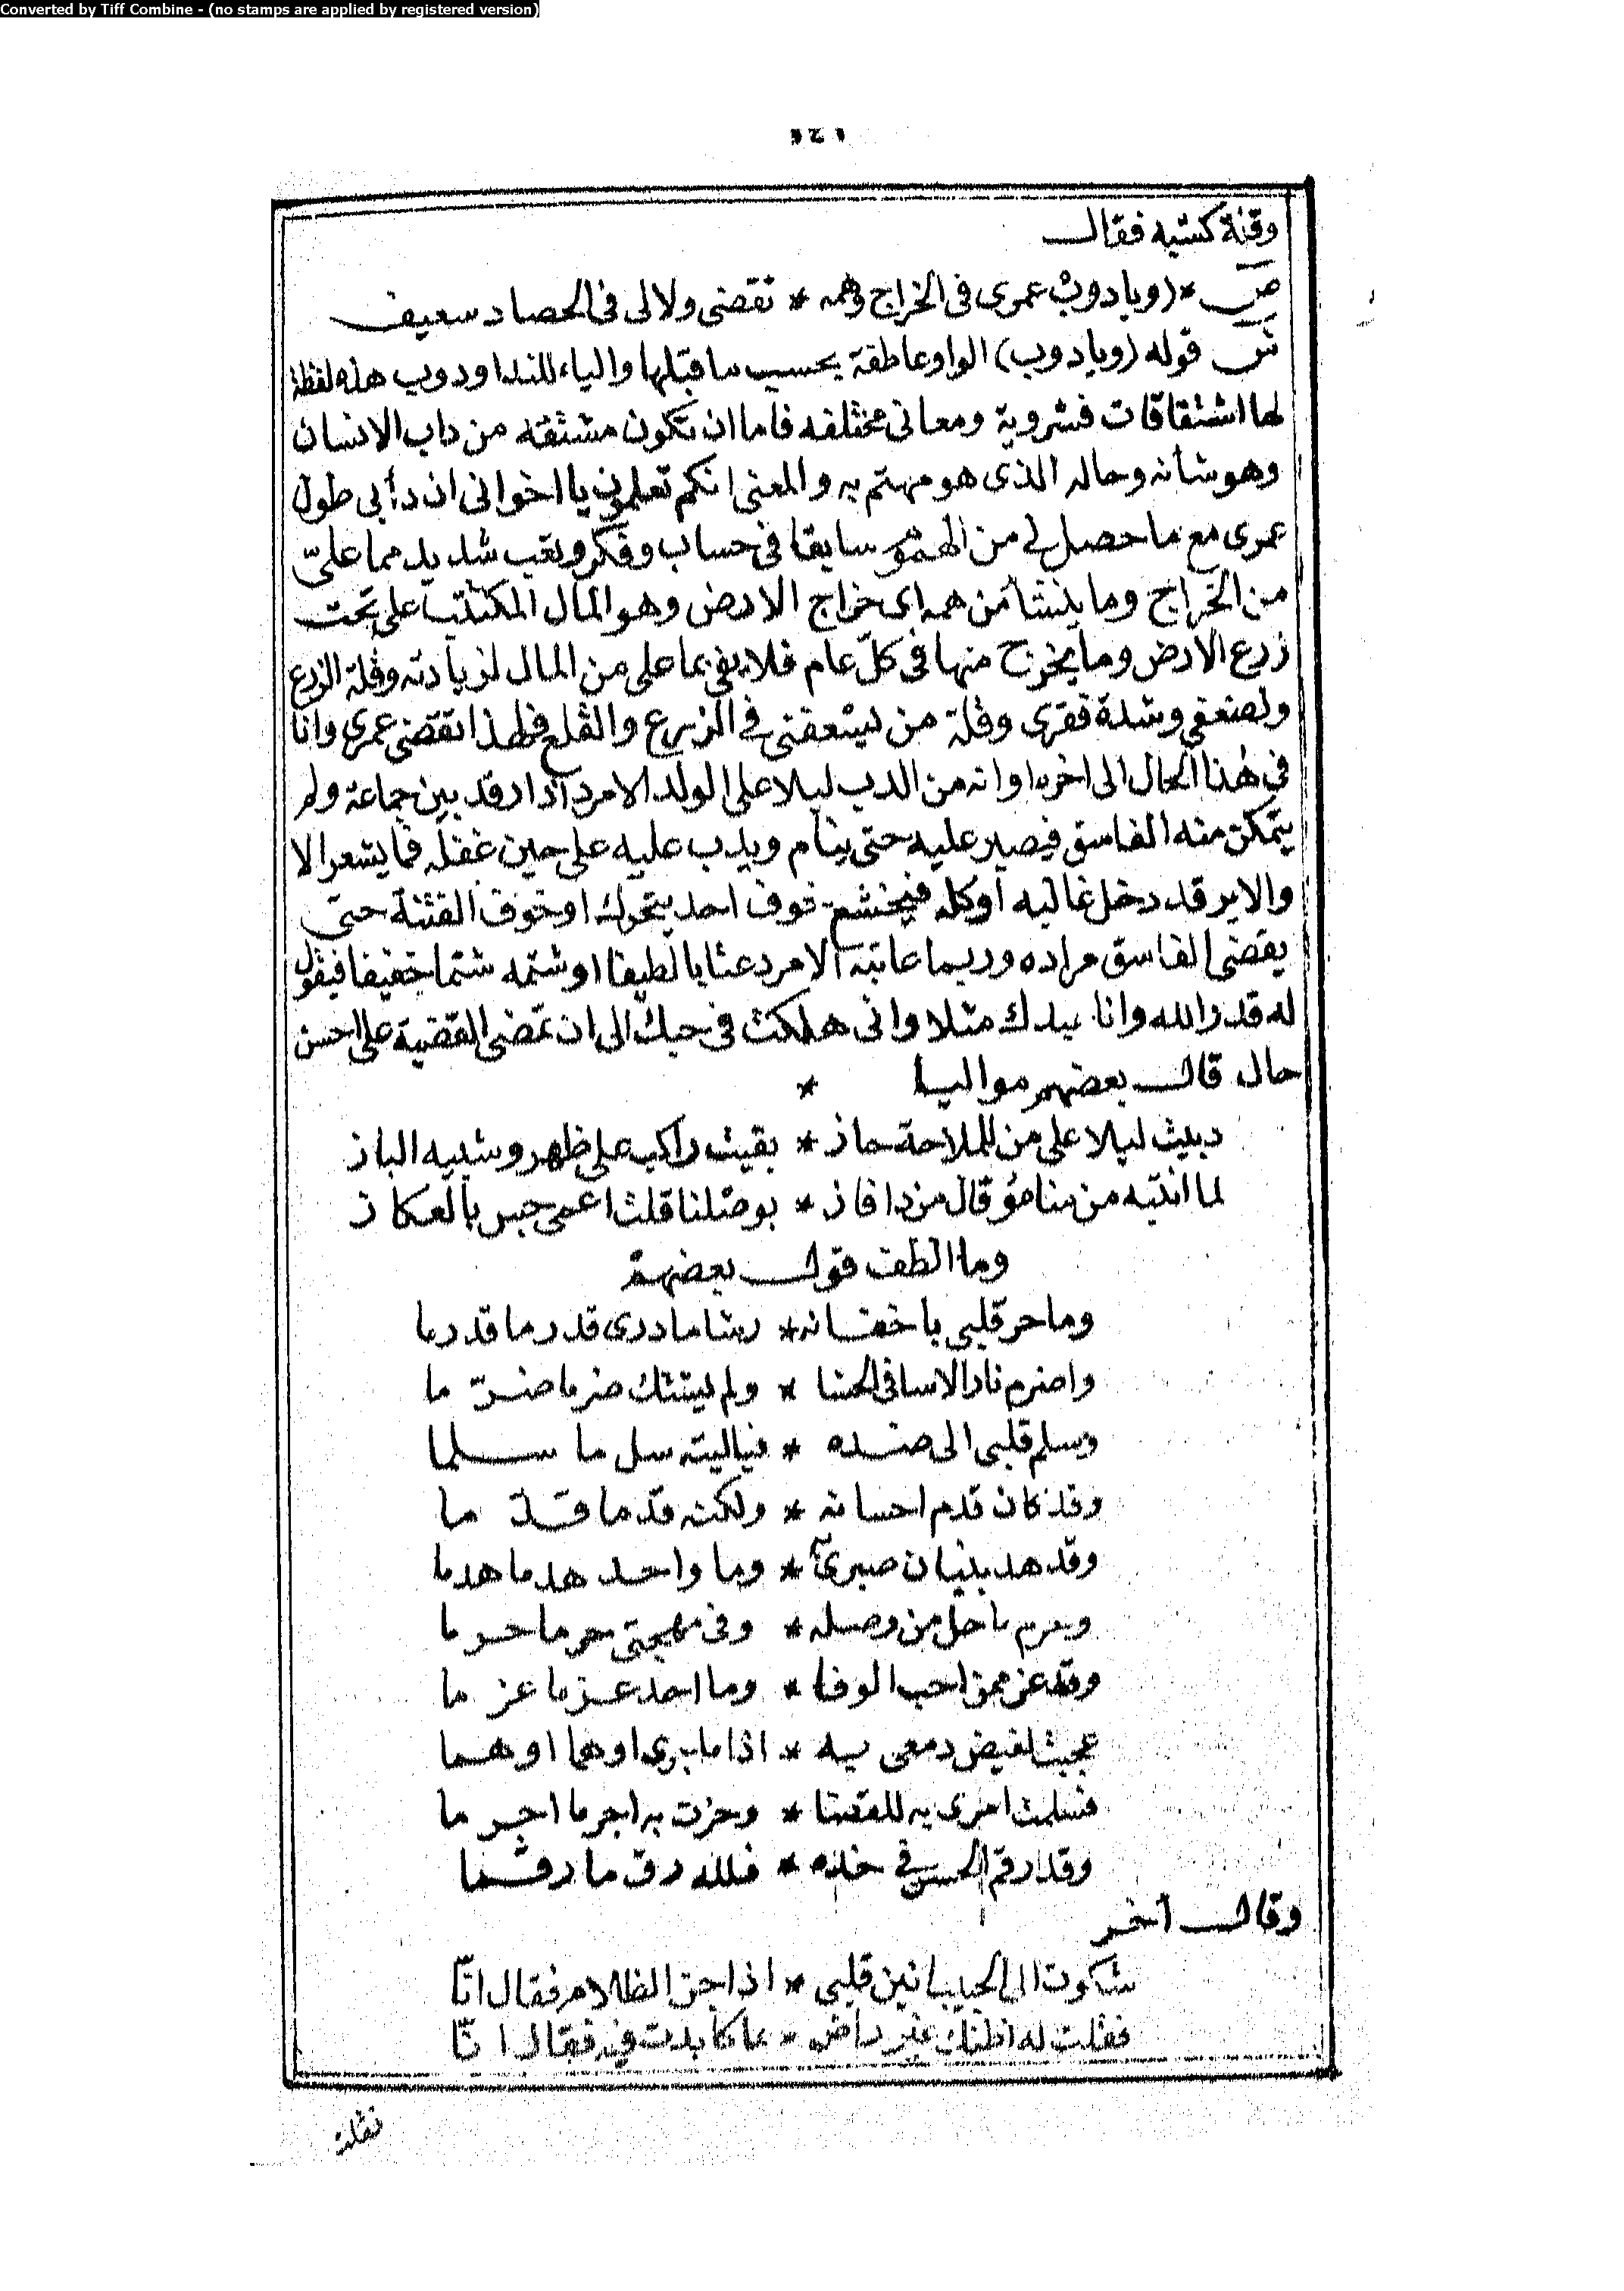 Converted by Tiff Combine - (no stamps are applied by registered version)
وقلة كسبه فقال
ص * (ويادوب عمرى فى الخراج وهمه * تقضى ولا لى فى الحصاد سعيف
ش قوله (ويادوب) الواو عاطفة بحسب ما قبلها والياء للندا ودوب هذه لفظة
لها اشتقاقات فشروية ومعانى مختلفه فاما ان تكون مشتقه من داب الانسان
وهو شانه وحاله الذى هو مهتم به والمعنى انكم تعلمون يا اخوانى ان دأبى طول
عمرى مع ما حصل لى من الهموم سابقا فى حساب وفكر وتعب شديد مما علىّ
من الخراج وما ينشأ من همه اى خراج الارض وهو المال المكتتب على تحت
زرع الارض وما يخرج منها فى كل عام فلا يفى بما على من المال لزيادته وقلة الزرع
ولضعفى وشدة فقرى وقلة من يسعفنى فى الزرع والقلع فلهذا تقضى عمرى وانا
فى هذا الحال الى اخره او انه من الدب ليلا على الولد الامرد اذا رقد بين جماعة ولم
يتمكن منه الفاسق فيصبر عليه حتى ينام ويدب عليه على حين غفله فما يشعر الا
والاير قد دخل غالبه او كله فيختشم خوف احد يتحرك او خوف الفتنة حتى
يقضى الفاسق مراده وربما عاتبه الامرد عتابا لطيفا او شتمه شتما خفيفا فيقول
له قدر الله وانا بيدك مثلا وانى هلكت فى حبك الى ان تمضى القضية على احسن
حال قال بعضهم مواليا *
دبيت ليلا على من للملاحة حاز * بقيت راكب على ظهرو شبيه الباز
لما انتبه من منامو قال من دا فاز * بوصلنا قلت اعمى جس بالعكاز
وما الطف قول بعضهم
وما حر قلبى باخفانه * رشا ما درى قدر ما قد رما
واضرم نار الاسا فى الحشا * ولم يشتك ضر ما ضرّ ما
وسلم قلبى الى صده * فياليته سل ما سلما
وقد كان قدم احسانه * ولكنه قد ما قدّ ما
وقد هد بنيان صبرى * وما واحد هد ما هدما
وحرم ما حل من وصله * وفى مهجتى حر ما حر ما
وقد عز ممن احب الوفا * وما احد عز ما عز ما
عجبت لفيض دمعى به * اذا ما جرى او هما او هما
فسلمت امرى به للقضا * وحزت به اجر ما اجر ما
وقد رقم الحسن فى خده * فلله رق ما رقما
وقال آخر
شكوت الى الحبيب انين قلبى * اذا جن الظلام فقال انّا
فقلت له اظنك غير راض * بما كابدت فيه فقال انّا
فقلت